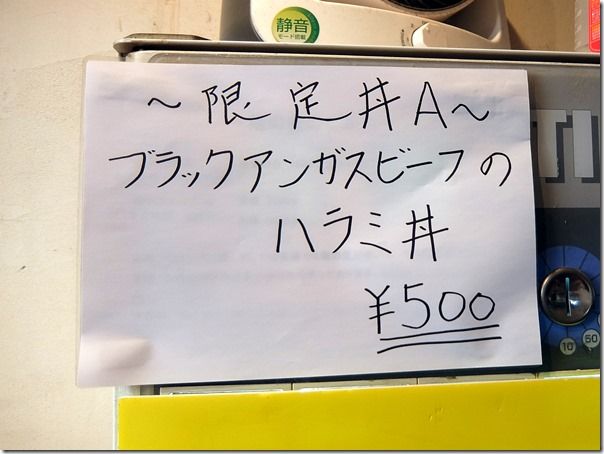 静音
モード搭載
～限定丼A～
ブラックアンガスビーフの
ハラミ丼
¥500
10 50